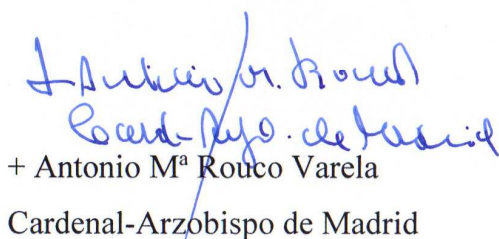 + Antonio M. Rouco
Card-Arzo. de Madrid
+ Antonio Mª Rouco Varela
Cardenal-Arzobispo de Madrid